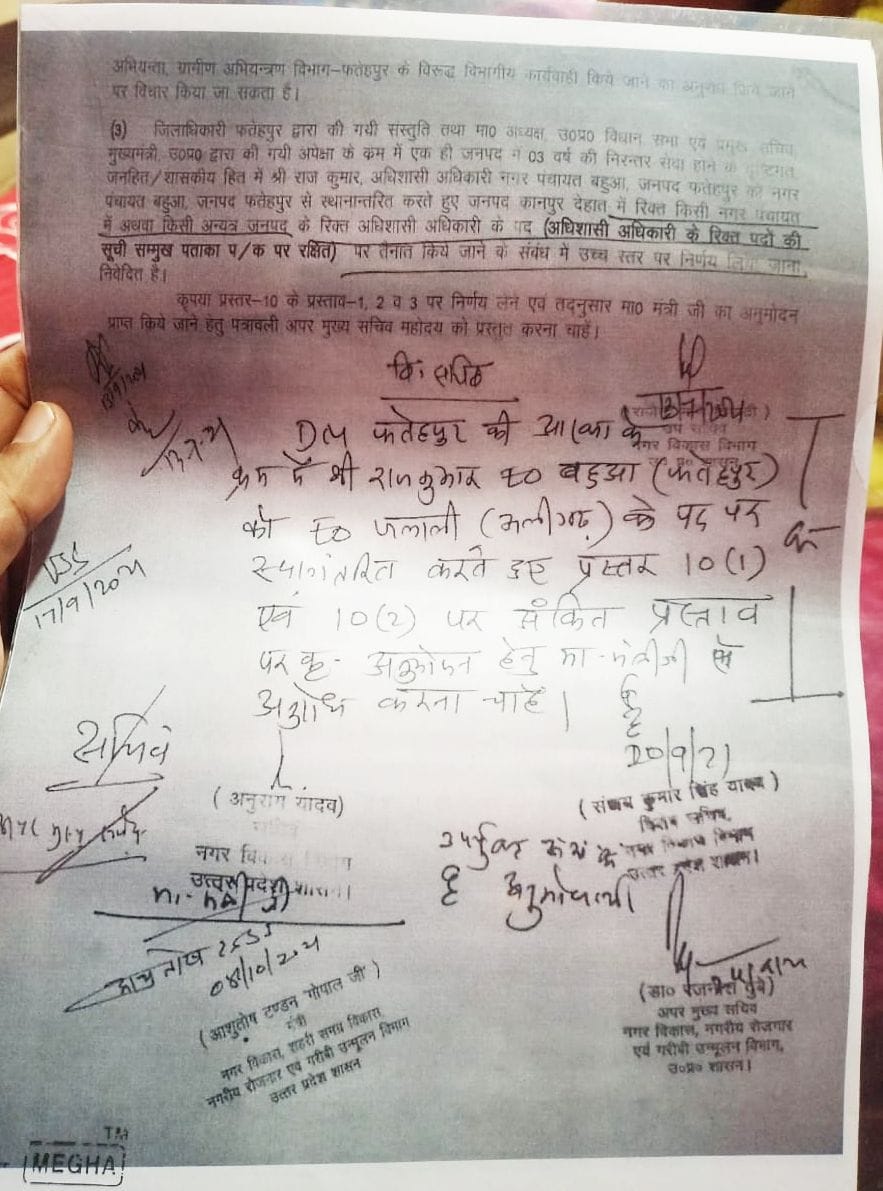 अभियन्ता, ग्रामीण अभियन्त्रण विभाग-फतेहपुर के विरूद्ध विभागीय कार्यवाही किये जाने का अनुरोध किये जाने
पर विचार किया जा सकता है।
(3) जिलाधिकारी फतेहपुर द्वारा की गयी संस्तुति तथा मा0 अध्यक्ष, उ0प्र0 विधान सभा एवं प्रमुख सचिव,
मुख्यमंत्री, उ0प्र0 द्वारा की गयी अपेक्षा के क्रम में एक ही जनपद में 03 वर्ष की निरन्तर सेवा होने के दृष्टिगत
जनहित/शासकीय हित में श्री राज कुमार, अधिशासी अधिकारी नगर पंचायत बहुआ, जनपद फतेहपुर को नगर
पंचायत बहुआ, जनपद फतेहपुर से स्थानान्तरित करते हुए जनपद कानपुर देहात में रिक्त किसी नगर पंचायत
में अथवा किसी अन्यत्र जनपद के रिक्त अधिशासी अधिकारी के पद (अधिशासी अधिकारी के रिक्त पदों की
सूची सम्मुख पताका प/क पर रक्षित) पर तैनात किये जाने के संबंध में उच्च स्तर पर निर्णय लिया जाना
निवेदित है।
कृपया प्रस्तर-10 के प्रस्ताव-1, 2 व 3 पर निर्णय लेने एवं तद्नुसार मा0 मंत्री जी का अनुमोदन
प्राप्त किये जाने हेतु पत्रावली अपर मुख्य सचिव महोदय को प्रस्तुत करना चाहें।
वि. सचिव
नगर विकास विभाग
DM फतेहपुर की आख्या के
क्रम में श्री राजकुमार EO बहुआ (फतेहपुर)
को EO जलाली (अलीगढ़) के पद पर
स्थानांतरित करते हुए प्रस्तर 10 (1)
17/9/2021
एवं 10(2) पर अंकित प्रस्ताव
पर कृ. अनुमोदन हेतु मा. मंत्रीजी से
अनुरोध करना चाहें।
सचिव
20/9/21
(अनुराग यादव)
(संजय कुमार सिंह यादव)
विशेष सचिव,
नगर विकास विभाग
उत्तर प्रदेश शासन।
नगर विकास विभाग
उत्तर प्रदेश शासन।
उपर्युक्त
अनुमोदनार्थ
आशुतोष टंडन
04/10/2021
(आशुतोष टण्डन 'गोपाल जी')
मंत्री
नगर विकास, शहरी समग्र विकास
नगरीय रोजगार एवं गरीबी उन्मूलन विभाग
उत्तर प्रदेश शासन
(डा० रजनीश दुबे)
अपर मुख्य सचिव
नगर विकास, नगरीय रोजगार
एवं गरीबी उन्मूलन विभाग,
उ०प्र० शासन।
TM
MEGHA